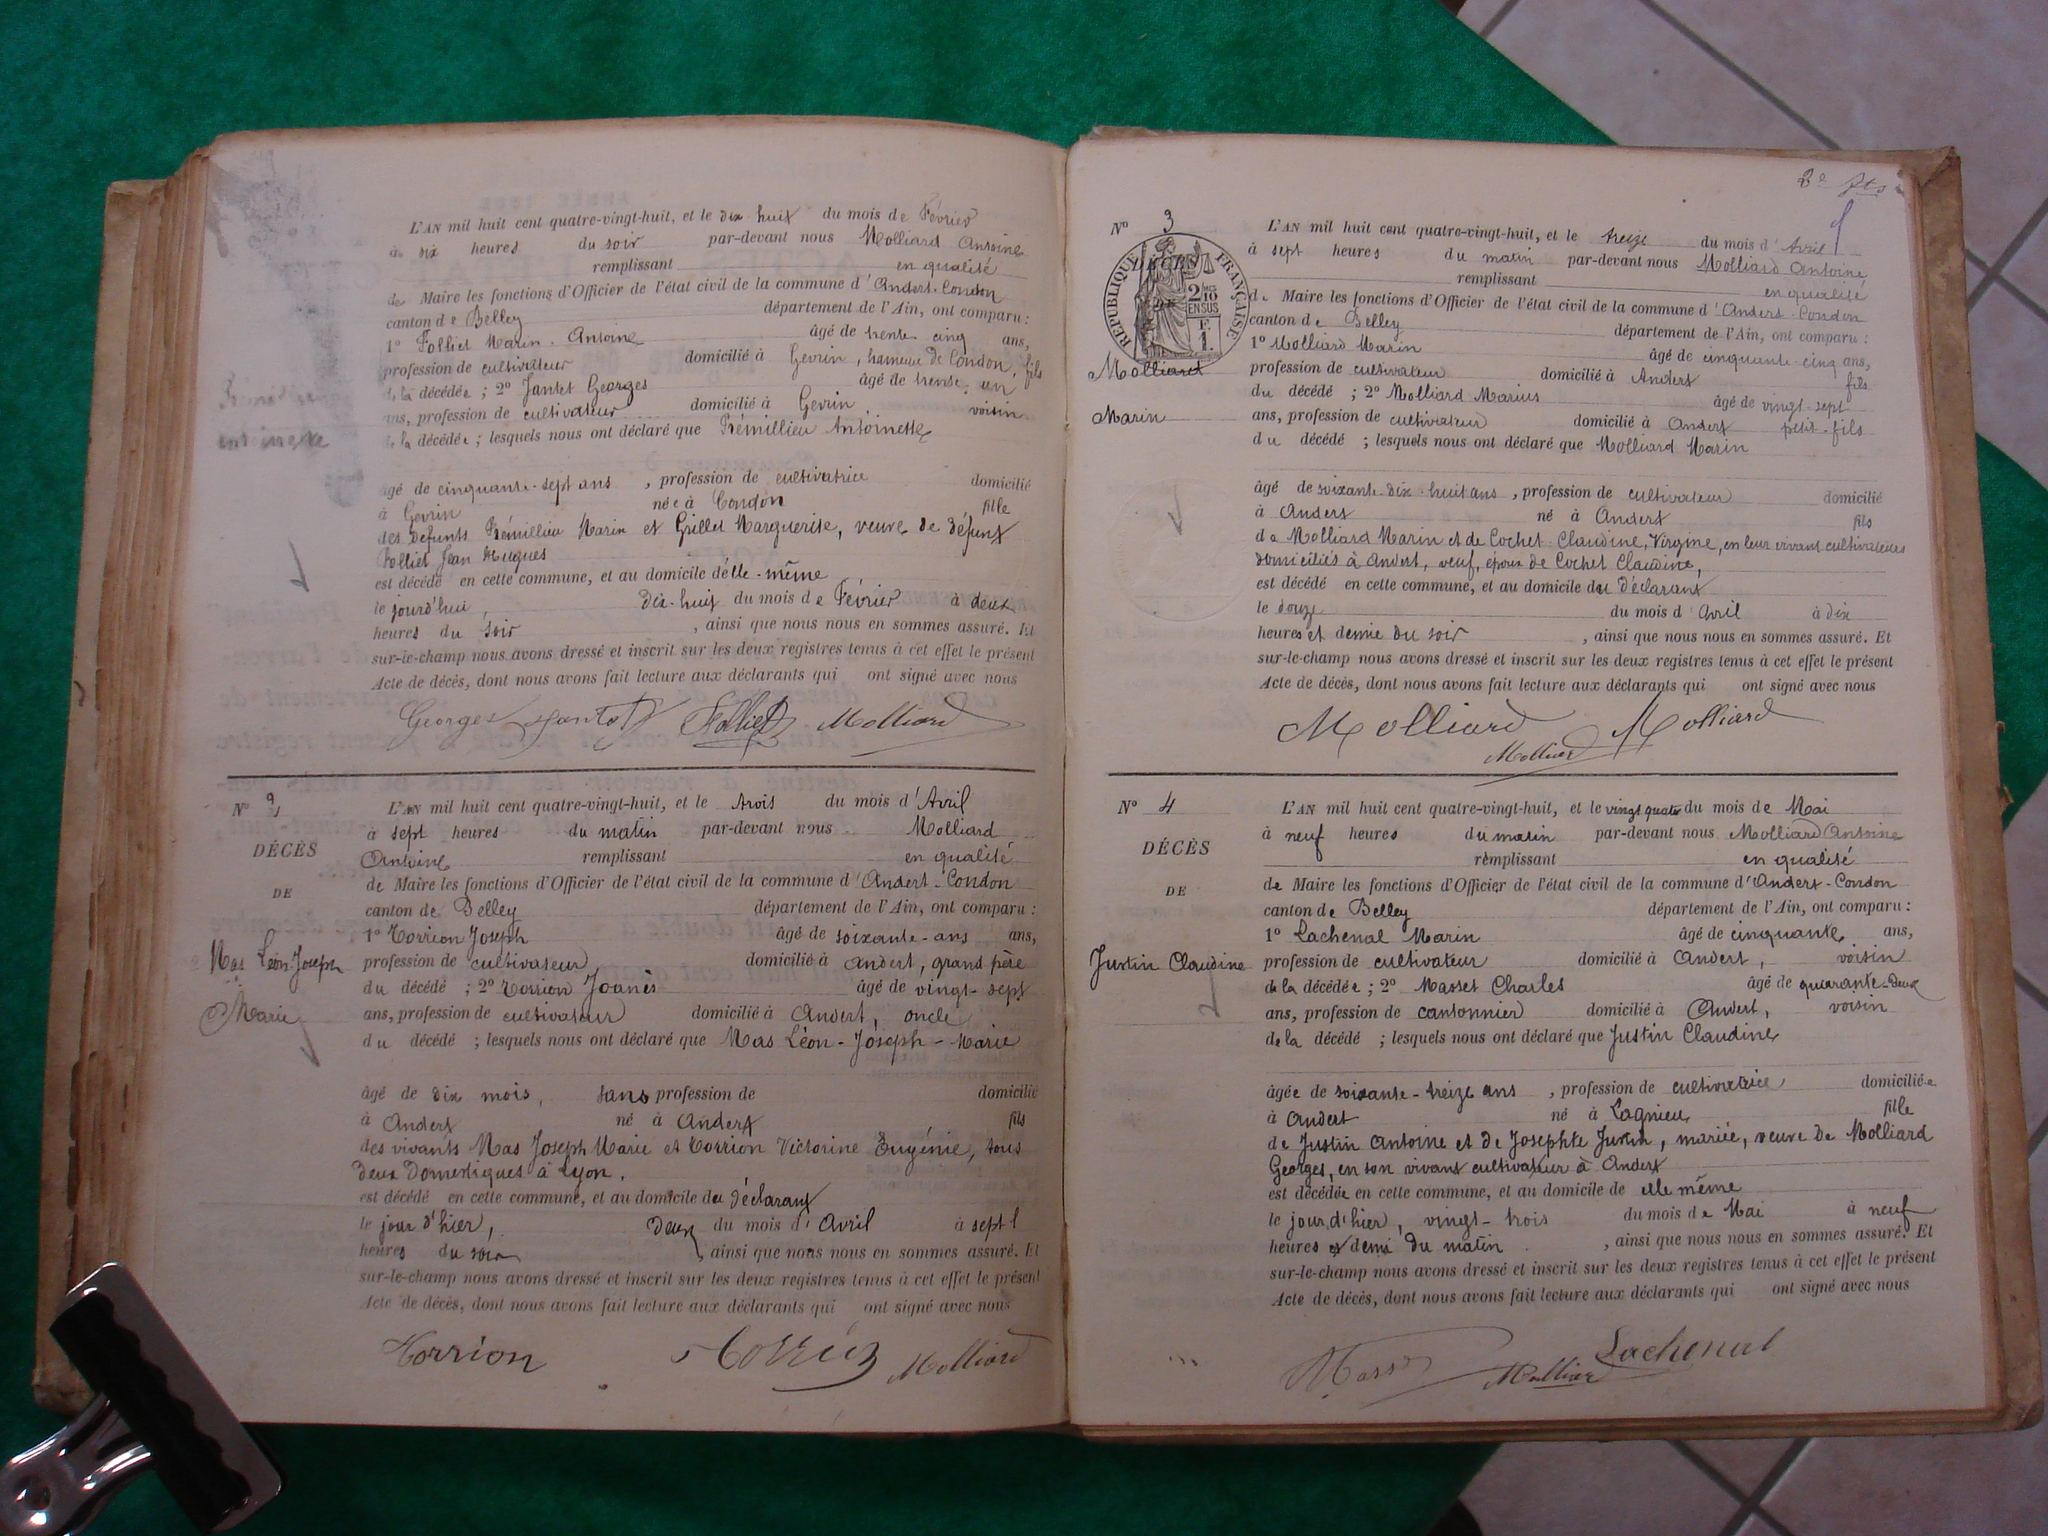 L'AN mil huit cent quatre-vingt-huit, et le dix-huit du mois de Février
à dix heures du soir par-devant nous Molliard Antoine
remplissant en qualité
de Maire les fonctions d'Officier de l'état civil de la commune d'Andert-Condon
canton de Belley département de l'Ain, ont comparu :
1° Folliet Marin-Antoine âgé de trente cinq ans,
profession de cultivateur domicilié à Gevrin, hameau de Condon, fils
de la décédée ; 2° Jantet Georges âgé de trente-un
ans, profession de cultivateur domicilié à Gevrin voisin
de la décédée ; lesquels nous ont déclaré que Prémillieu Antoinette
antoinette
âgé de cinquante-sept ans, profession de cultivatrice domicilié
à Gevrin née à Condon fille
des défunts Prémillieu Marin et Grillet Marguerite, veuve de défunt
Folliet Jean Hugues
est décédé en cette commune, et au domicile d'elle-même
le jourd'hui, dix-huit du mois de Février à deux
heures du soir, ainsi que nous nous en sommes assuré. Et
sur-le-champ nous avons dressé et inscrit sur les deux registres tenus à cet effet le présent
Acte de décès, dont nous avons fait lecture aux déclarants qui ont signé avec nous
Georges Jantet Folliet Molliard
N° 2
DÉCÈS
DE
Mas Léon-Joseph
Marie
L'AN mil huit cent quatre-vingt-huit, et le trois du mois d'Avril
à sept heures du matin par-devant nous Molliard
Antoine remplissant en qualité
de Maire les fonctions d'Officier de l'état civil de la commune d'Andert-Condon
canton de Belley département de l'Ain, ont comparu :
1° Torrion Joseph âgé de soixante-ans ans,
profession de cultivateur domicilié à Andert, grand père
du décédé ; 2° Torrion Joanès âgé de vingt-sept
ans, profession de cultivateur domicilié à Andert, oncle
du décédé ; lesquels nous ont déclaré que Mas Léon-Joseph-Marie
âgé de dix mois, sans profession de domicilié
à Andert né à Andert fils
des vivants Mas Joseph Marie et Torrion Victorine Eugénie, tous
deux Domestiques à Lyon,
est décédé en cette commune, et au domicile du déclarant
le jour d'hier, deux du mois d'Avril à sept
heures du soir, ainsi que nous nous en sommes assuré. Et
sur-le-champ nous avons dressé et inscrit sur les deux registres tenus à cet effet le présent
Acte de décès, dont nous avons fait lecture aux déclarants qui ont signé avec nous
Torrion Torrion Molliard
2e
N° 3
DÉCÈS
DE
RÉPUBLIQUE FRANÇAISE
2/10
EN SUS
F.
1.
Molliard
Marin
L'AN mil huit cent quatre-vingt-huit, et le treize du mois d'Avril
à sept heures du matin par-devant nous Molliard Antoine
remplissant en qualité
de Maire les fonctions d'Officier de l'état civil de la commune d'Andert-Condon
canton de Belley département de l'Ain, ont comparu :
1° Molliard Marin âgé de cinquante-cinq ans,
profession de cultivateur domicilié à Andert fils
du décédé ; 2° Molliard Marius âgé de vingt-sept
ans, profession de cultivateur domicilié à Andert petit-fils
du décédé ; lesquels nous ont déclaré que Molliard Marin
âgé de soixante-dix-huit ans, profession de cultivateur domicilié
à Andert né à Andert fils
de Molliard Marin et de Cochet Claudine, Virgine, en leur vivant cultivateurs
domiciliés à Andert, veuf, époux de Cochet Claudine,
est décédé en cette commune, et au domicile du déclarant
le douze du mois d'Avril à dix
heures et demie du soir, ainsi que nous nous en sommes assuré. Et
sur-le-champ nous avons dressé et inscrit sur les deux registres tenus à cet effet le présent
Acte de décès, dont nous avons fait lecture aux déclarants qui ont signé avec nous
Molliard Molliard Molliard
N° 4
DÉCÈS
DE
Justin Claudine
L'AN mil huit cent quatre-vingt-huit, et le vingt quatre du mois de Mai
à neuf heures du matin par-devant nous Molliard Antoine
remplissant en qualité
de Maire les fonctions d'Officier de l'état civil de la commune d'Andert-Condon
canton de Belley département de l'Ain, ont comparu :
1° Lachenal Marin âgé de cinquante ans,
profession de cultivateur domicilié à Andert, voisin
de la décédée ; 2° Masset Charles âgé de quarante-deux
ans, profession de cantonnier domicilié à Andert, voisin
de la décédé ; lesquels nous ont déclaré que Justin Claudine
âgée de soixante-treize ans, profession de cultivatrice domiciliée
à Andert né à Lagnieu fille
de Justin Antoine et de Josephte Justin, mariée, veuve de Molliard
Georges, en son vivant cultivateur à Andert
est décédée en cette commune, et au domicile de elle même
le jour d'hier, vingt-trois du mois de Mai à neuf
heures et demi du matin, ainsi que nous nous en sommes assuré. Et
sur-le-champ nous avons dressé et inscrit sur les deux registres tenus à cet effet le présent
Acte de décès, dont nous avons fait lecture aux déclarants qui ont signé avec nous
Masset Molliard Lachenal